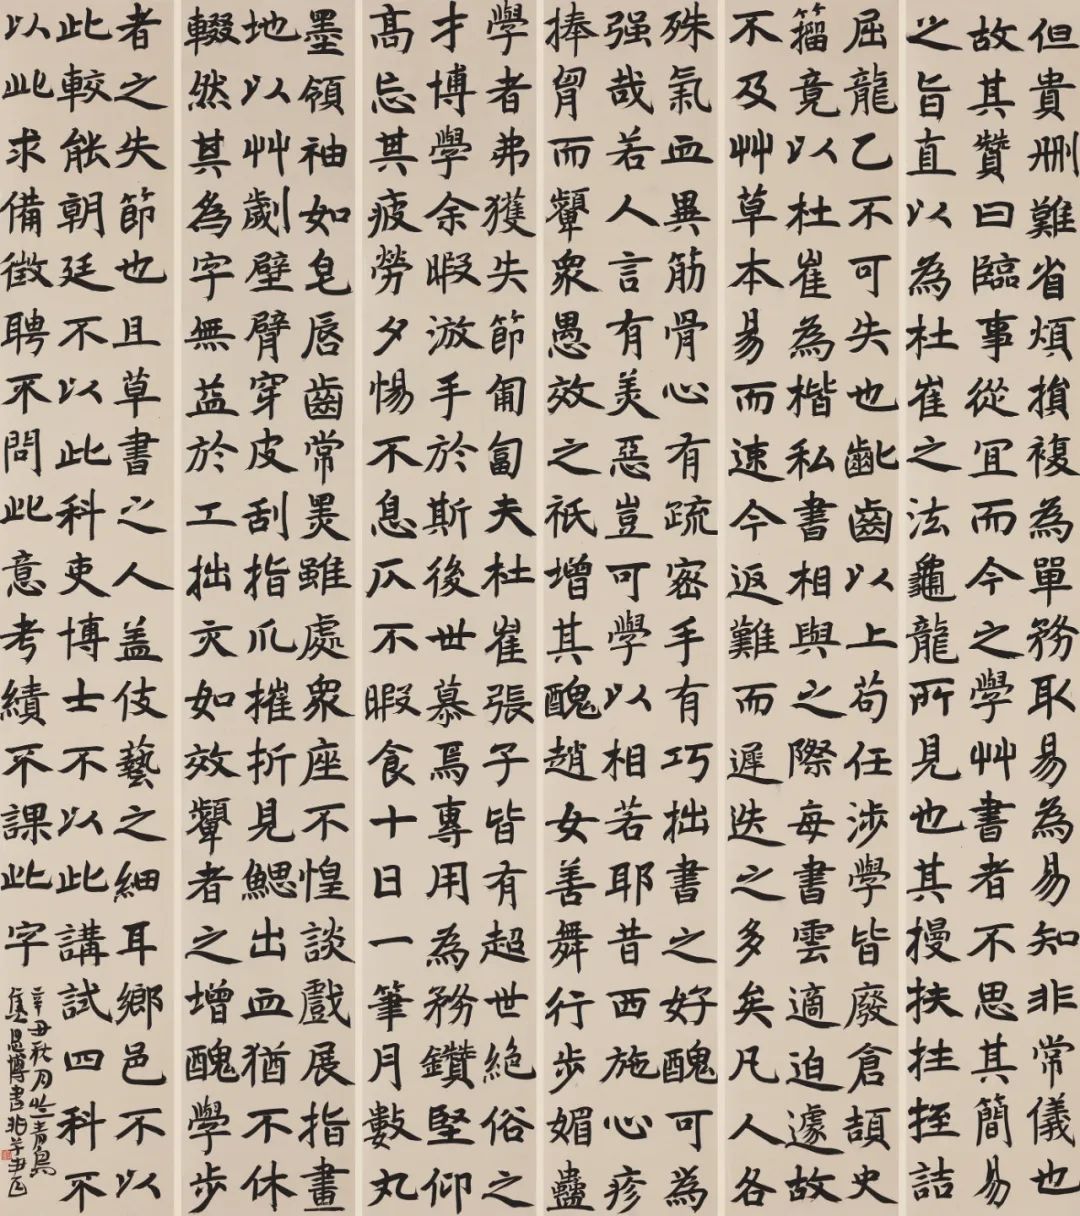 但貴刪難省煩損複為單務取易為易知非常儀也
故其贊曰臨事從宜而今之學艸書者不思其簡易
之旨直以為杜崔之法龜龍所見也其摱扶拄挃詰
屈龍乙不可失也齔齒以上苟任涉學皆廢倉頡史
籀竟以杜崔為楷私書相與之際每書雲適迫遽故
不及艸草本易而速今返難而遲迭之多矣凡人各
殊氣血異筋骨心有疏密手有巧拙書之好醜可為
强哉若人言有美惡豈可學以相若耶昔西施心疹
捧胷而顰眾愚效之祇增其醜趙女善舞行步媚蠱
學者弗獲失節匍匐夫杜崔張子皆有超世絕俗之
才博學余暇游手於斯後世慕焉專用為務鑽堅仰
高忘其疲勞夕惕不息仄不暇食十日一筆月數丸
墨領袖如皂唇齒常黑雖處眾座不惶談戲展指畫
地以艸劌壁臂穿皮刮指爪摧折見鰓出血猶不休
輟然其為字無益於工拙亦如效顰者之增醜學步
者之失節也且草書之人盖伎藝之細耳鄉邑不以
此較能朝廷不以此科吏博士不以此講試四科不
以此求備徵聘不問此意考績不課此字
辛丑秋月於青島
博書非草書